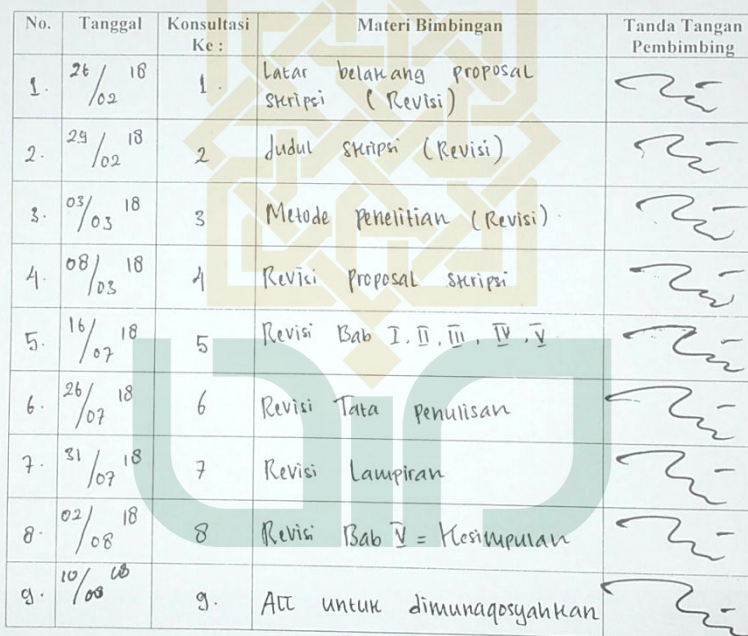 No. Tanggal Konsultasi Ke : Materi Bimbingan Tanda Tangan Pembimbing
1. 26/02 18 1. Latar belakang proposal
skripsi (Revisi)
2. 29/02 18 2 Judul skripsi (Revisi)
3. 03/03 18 3 Metode penelitian (Revisi).
4. 08/03 18 4 Revisi proposal skripsi
5. 16/07 18 5 Revisi Bab I, II, III, IV, V
6. 26/07 18 6 Revisi Tata penulisan
7. 31/07 18 7 Revisi Lampiran
8. 02/08 18 8 Revisi Bab V = Kesimpulan
9. 10/08 18 9. ACC untuk dimunaqosyahkan